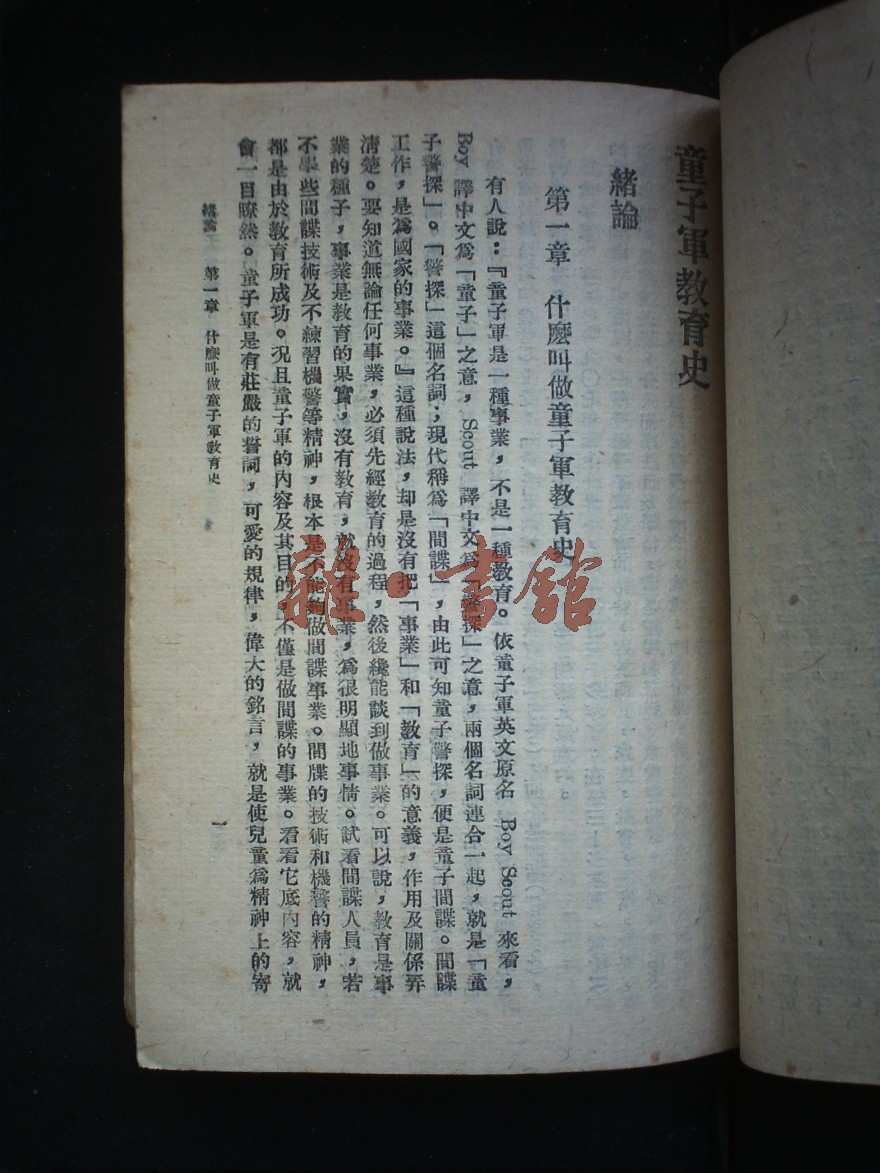 童子軍教育史
緒論
第一章　什麼叫做童子軍教育史
有人說：『童子軍是一種事業，不是一種教育。依童子軍英文原名 Boy Scout 來看，
Boy 譯中文為「童子」之意，Scout 譯中文為「警探」之意，兩個名詞連合一起，就是「童
子警探」。「警探」這個名詞；現代稱為「間諜」，由此可知童子警探，便是童子間諜。間諜
工作，是為國家的事業。』這種說法，却是沒有把「事業」和「教育」的意義，作用及關係弄
清楚。要知道無論任何事業，必須先經教育的過程，然後纔能談到做事業。可以說，教育是事
業的種子，事業是教育的果實，沒有教育，就沒有事業，為很明顯地事情。試看間諜人員，若
不學些間諜技術及不練習機警等精神，根本是不能夠做間諜事業。間牒的技術和機警的精神，
都是由於教育所成功。況且童子軍的內容及其目的，不僅是做間諜的事業。看看它底內容，就
會一目瞭然。童子軍是有莊嚴的誓詞，可愛的規律，偉大的銘言，就是使兒童為精神上的寄
緒論　第一章　什麼叫做童子軍教育史
一
雜·書館